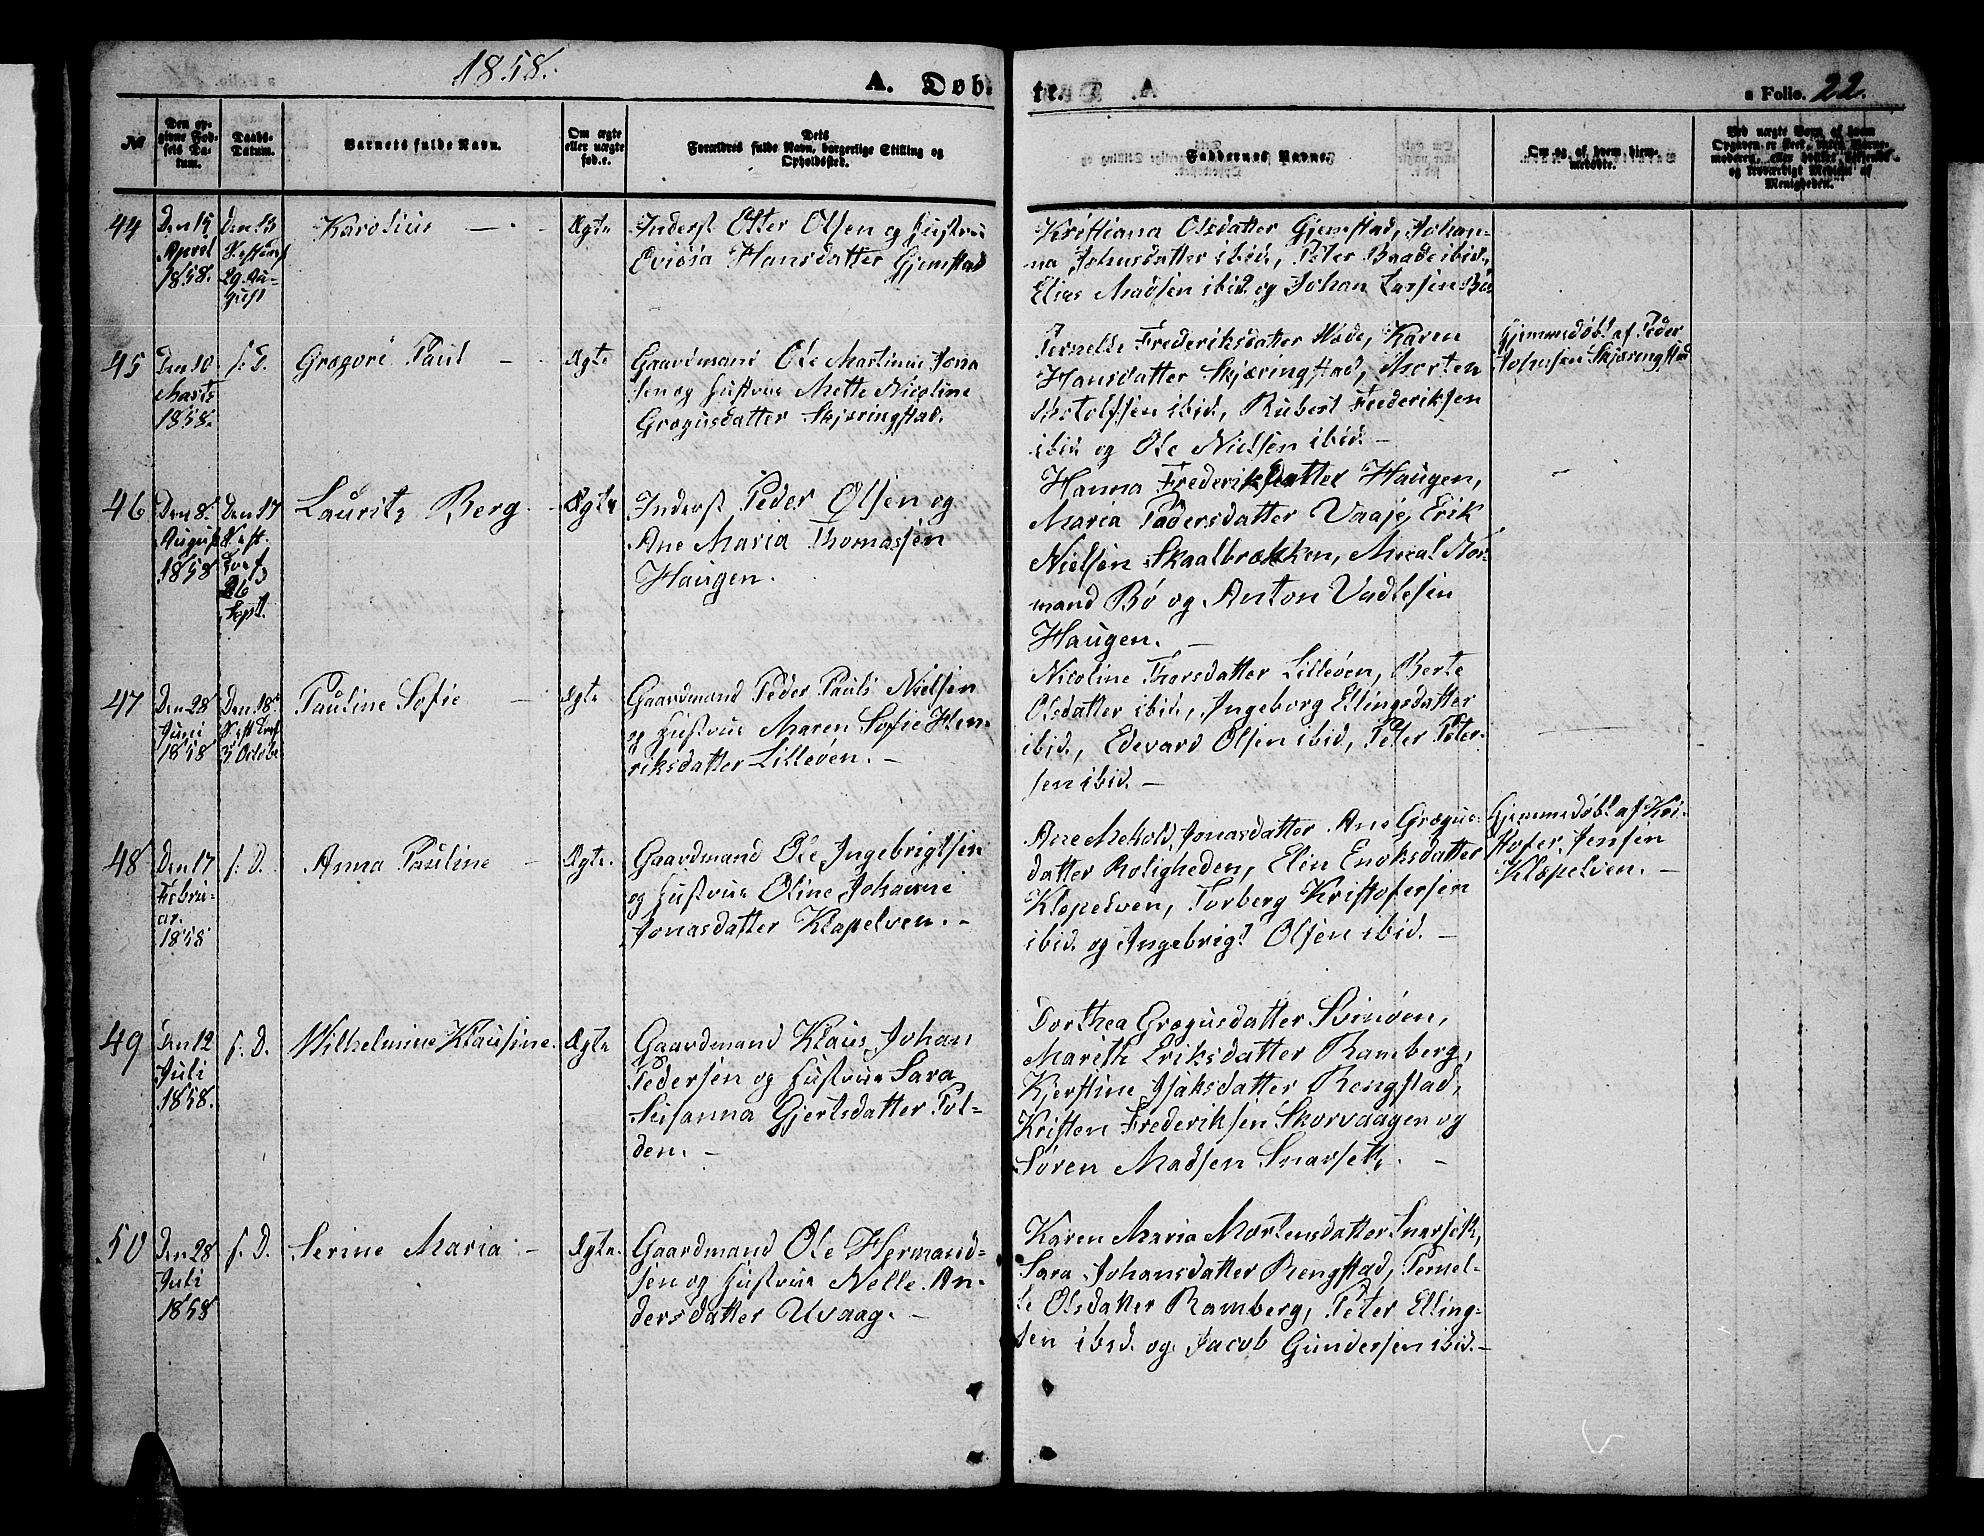 1858.
A. Døb-
te.
a Folio. 22.
№
Den op-
givne Fød-
sels Da-
tum.
Daabs-
Datum.
Barnets fulde Navn.
Om ægte
eller uægte
fød.e.
Dets
Forældres fulde Navn, borgerlige Stilling og
Opholdssted.
Faddernes Navne.
Om og af hvem hjem-
medøbte.
Ved uægte Børn, af hvem
Opgaven er skeet, uden Barne-
moderen, eller hvilket bekjendt
og troværdigt Medlem af
Menigheden.
44
Den 15
April
1858.
Den 13
S. eft.
29. Au-
gust
Karolius — -
Ægte
Inderst Etter Olsen og Hustrue
Hansdatter Gjemstad
Kristiana Olsdatter Gjemstad, Johan-
na Johnsdatter ibid, Peter Baade ibid,
Elias Madsen ibid og Johan Larsen Bø
45
Den 10
Marts
1858.
s. D.
Gregori Paul -
Ægte
Gaardmand Ole Martinus Jona
sen og Hustrue Mette Nicoline
Grægusdatter Skjæringstad.
Pernelle Frederiksdatter Hade, Karen
Hansdatter Skjæringstad, Morten
ibid, Rubert Frederiksen
ibid og Ole Nielsen ibid. -
Gjemmedøbt af Peder
Johnsen Skjæringstad
46
Den 8.
August
1858
Den 17
S. eft.
Tref
26
Sept.
Lauritz Berg -
Ægte
Inderst Peder Olsen og
Ane Maria Thomassen
Haugen.
Hanna Frederiksdatter Haugen,
Maria Pedersdatter Vaaje, Erik
Nielsen Skaalbrækken, Mical Nor-
mand Bø og Anton Vadlesen
Haugen. -
-
47
Den 28
Juni
1858
Den 18.
S. eft Tref
3 Octobe
Pauline Sofie -
Ægte
Gaardmand Peder Pauli Nielsen
og Hustrue Maren Sofie Hen-
riksdatter Lilleøen. -
Nicoline Thorsdatter Lilleøen, Berte
Olsdatter ibid, Ingeborg Ellingsdatter
ibid, Edevard Olsen ibid, Peter Peter-
sen ibid. -
48
Den 17
Febru-
ar.
1858
s. D.
Anna Pauline -
Ægte.
Gaardmand Ole Ingebrigtsen
og Hustrue Oline Johanne
Jonasdatter Klæpelven. -
Ane Jonasdatter Ane Grægus-
datter Roligheden, Elin Enoksdatter
Klæpelven, Torberg Kristofersen
ibid. og Ingebrigt Olsen ibid. -
Gjemmedøbt af Kri-
stofer Jensen
Klæpelven. -
49
Den 12
Juli
1858.
s. D.
Wilhelmine Klausine.
Ægte
Gaardmand Klaus Johan
Pedersen og Hustrue Sara
Susanna Gjertsdatter Pol-
den. -
Dorthea Grægusdatter Svinøen,
Marith Eriksdatter Ramberg,
Kjerstine Isaksdatter Rengstad,
Kristen Frederiksen Skorvaagen og
Søren Madsen Snarseth. -
50
Den 28
Juli
1858
s. D.
Serine Maria -
Ægte.
Gaardmand Ole Hermand-
sen og Hustrue Nelle An-
dersdatter Uvaag. -
Karen Maria Mortensdatter Snarseth,
Sara Johansdatter Rengstad, Pernel-
le Olsdatter Ramberg, Peter Elling-
sen ibid. og Jacob Gundersen ibid. -